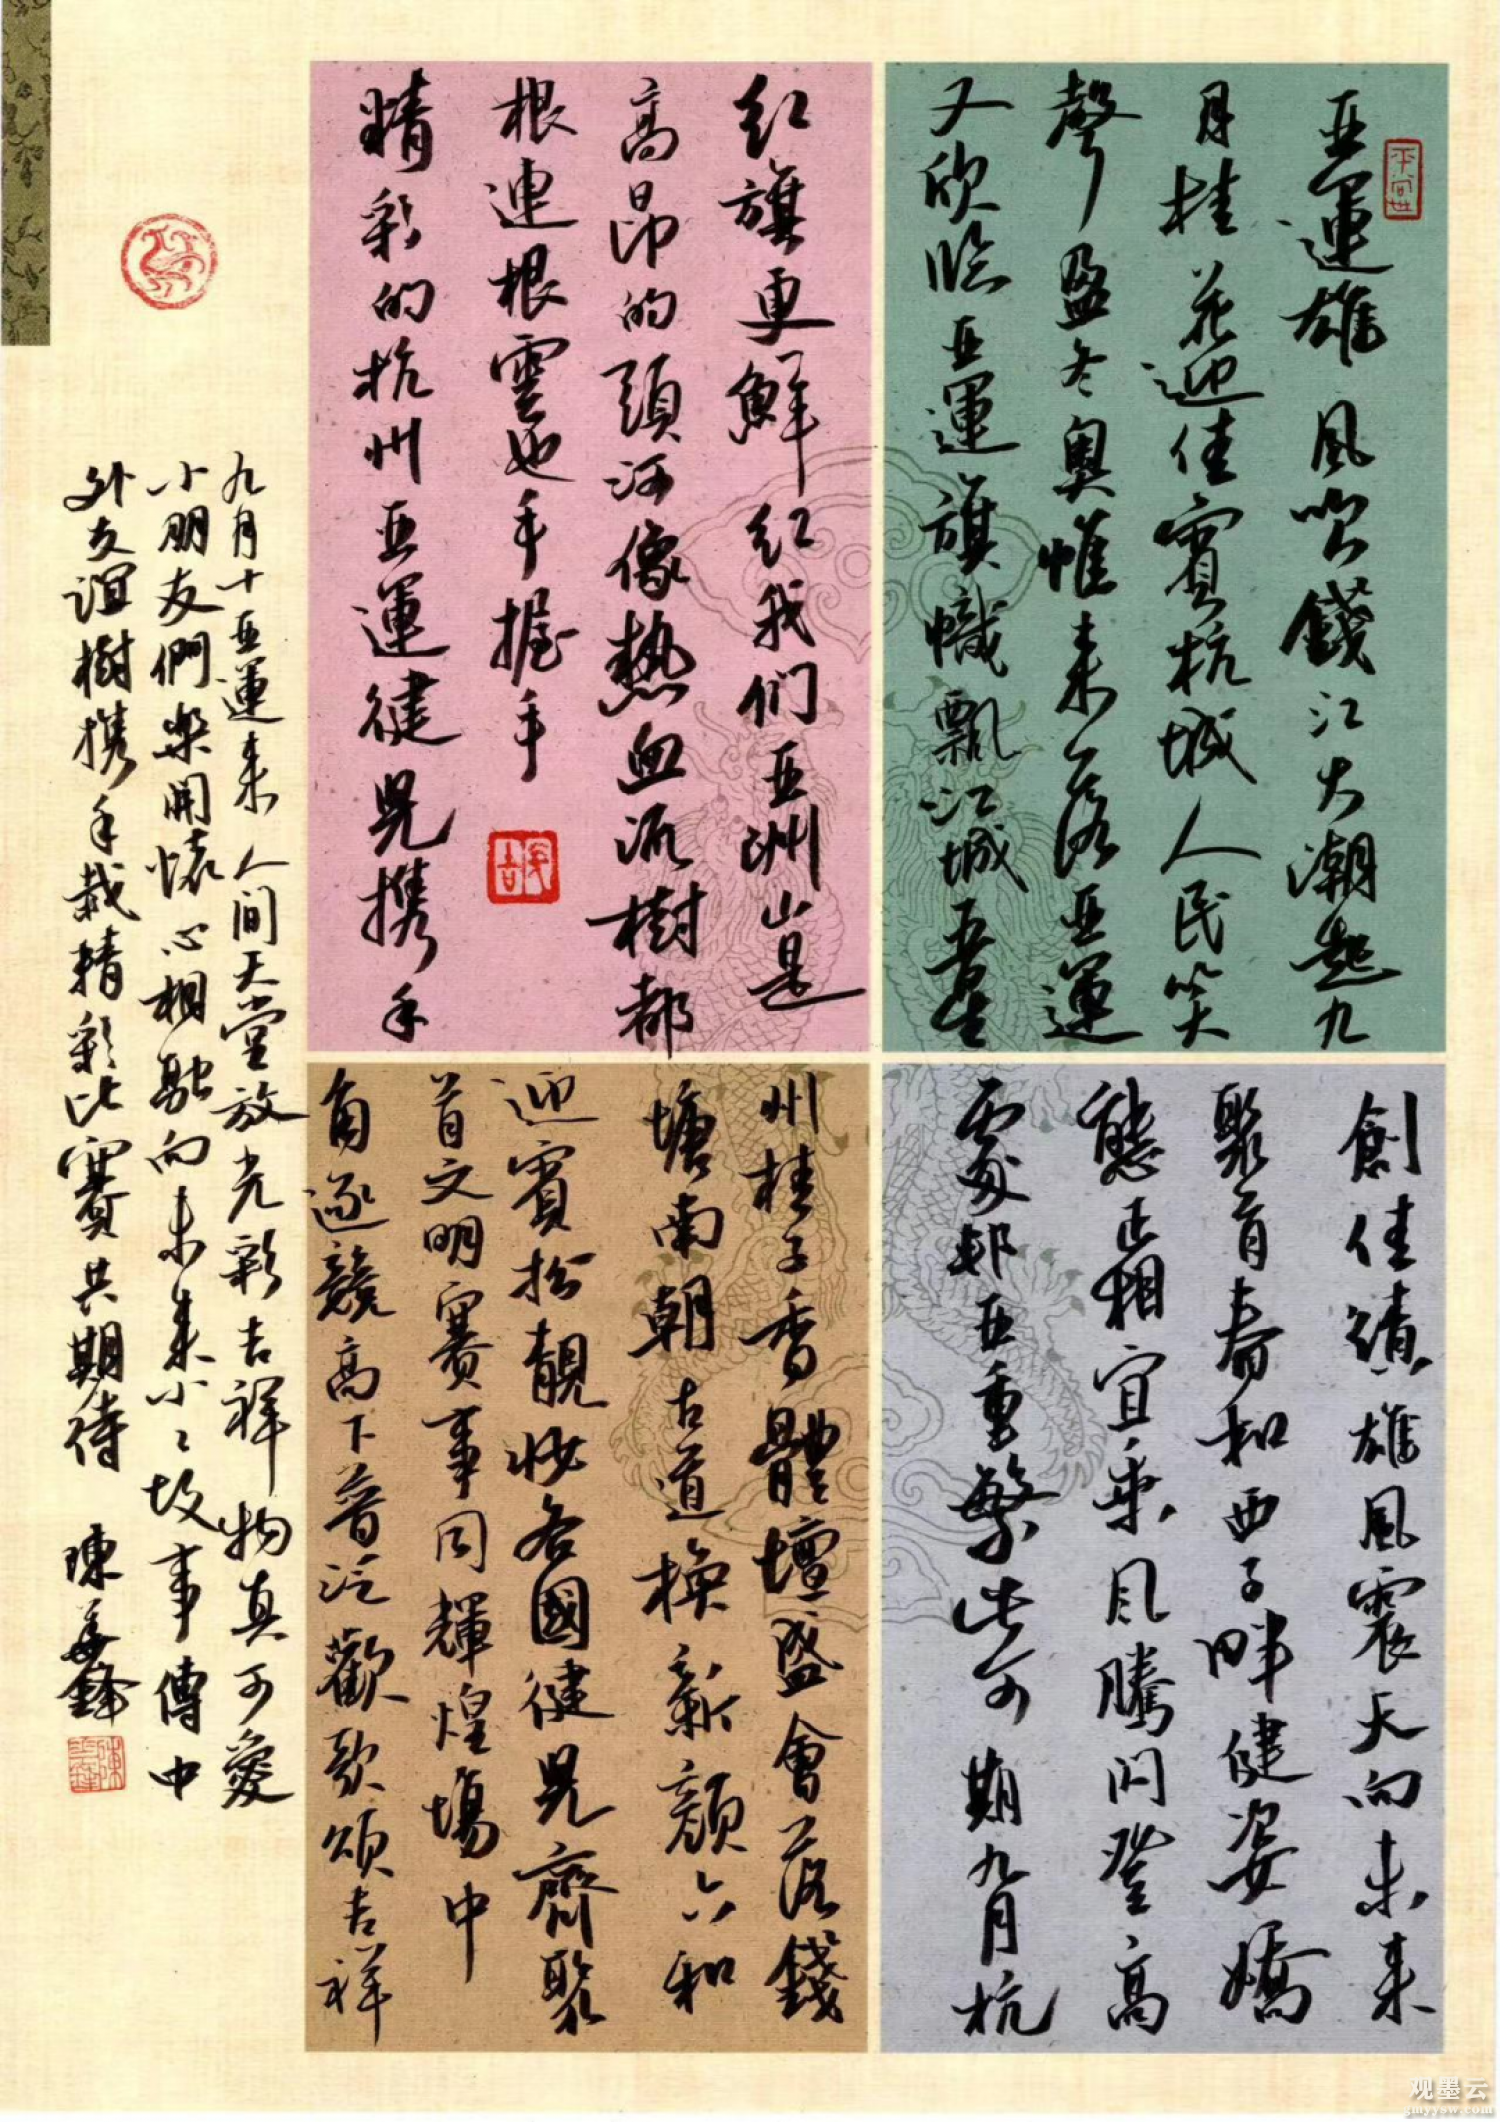 亞運雄風吹錢江大潮起九
月桂花迎佳賓杭城人民笑
聲盈冬奧惟未落亞運
又欣臨亞運旗幟飄江城五星
紅旗更鮮紅我们亞洲山是
高昂的頭河像熱血流樹都
根連根雲也手握手
精彩的杭州亞運健兒携手
創佳績雄風震天向未来
聚首春和西子畔健姿嬌
態正相宜乘風騰閃登高
處郵亞重繁此可期九月杭
州桂子香體壇盛會落錢
塘南朝古道換新顏六和
迎賓扮靚妝各國健兒齊聚
首文明賽事同輝煌場中
角逐競高下普泛歡歌頌吉祥
九月十亞運来人間天堂放光彩吉祥物真可愛
小朋友們樂開懷心相融向未来小々故事傳中
外友誼樹携手栽精彩比賽共期待
陳
观墨云
jmyysw.com